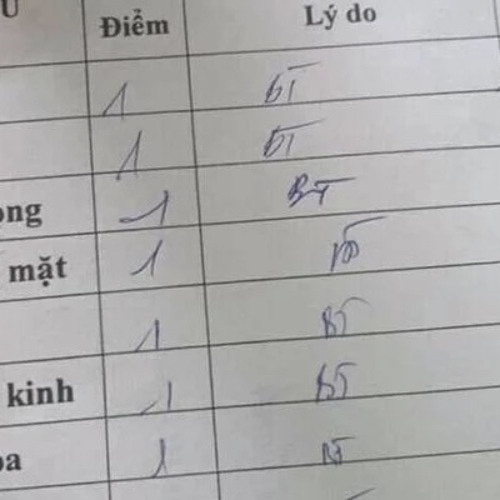 U Điểm Lý do
1 BT
1 BT
ong 1 BT
mặt 1
1 BT
kinh 1 BT
oa 1 BT